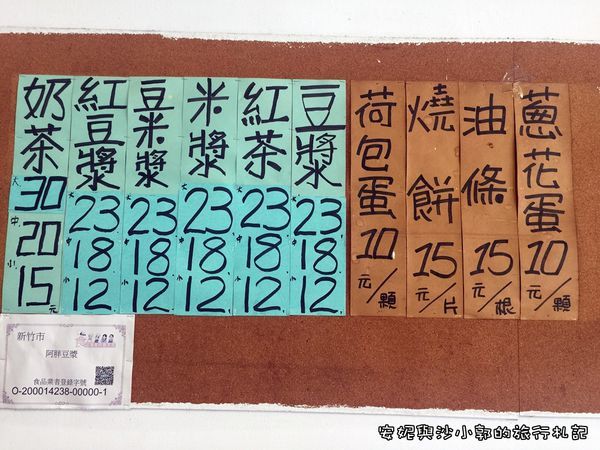 奶茶
大30
中20
小15元
紅豆漿
23
中18
小12
豆米漿
大23
中18
小12
米漿
大23
中18
小12
紅茶
大23
中18
小12
豆漿
大23
中18
小12
荷包蛋
10元/顆
燒餅
15元/片
油條
15元/根
蔥花蛋
10元/顆
新竹市
阿胖豆漿
食品業者登錄字號
O-200014238-00000-1
安妮與沙小郭的旅行札記